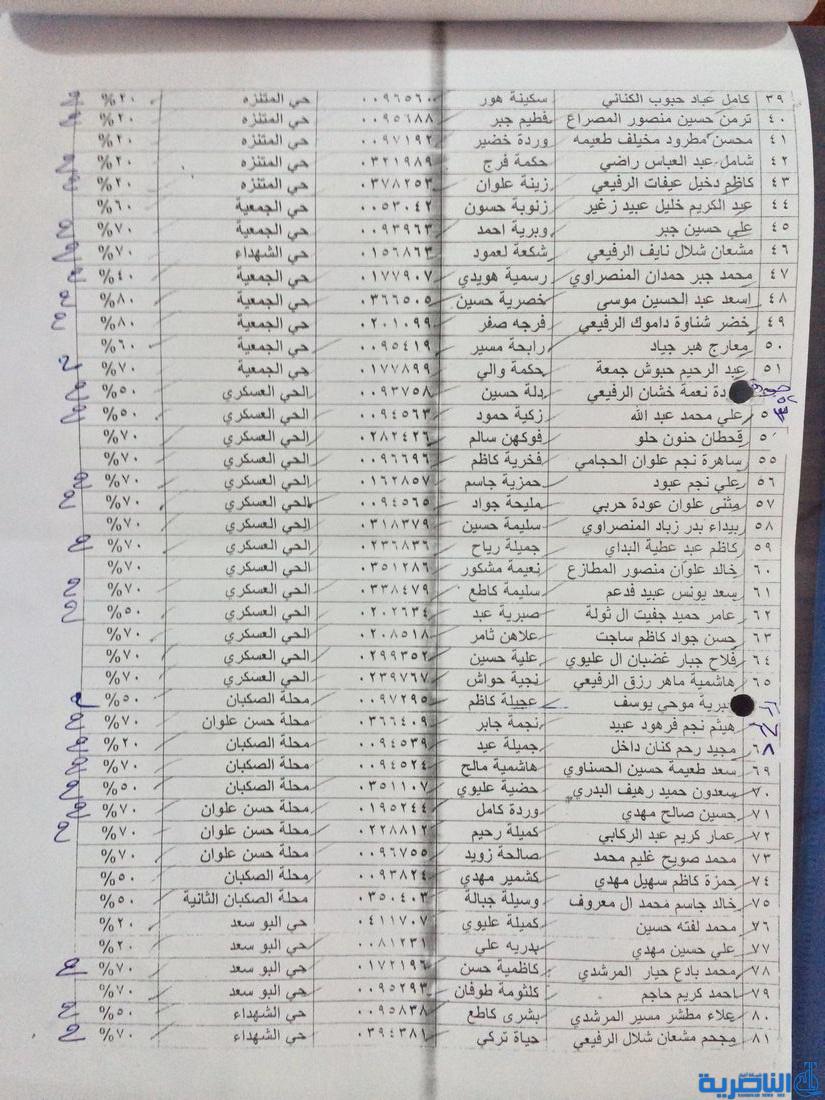 ٣٩ كامل عباد حبوب الكناني سكينة هور ٠٠٩٦٥٦٠ حي المتنزه ٢٠%
٤٠ ترمن حسين منصور المصراع فطيم جبر ٠٠٩٥٦٨٨ حي المتنزه ٢٠%
٤١ محسن مطرود مخيلف طعيمه وردة خضير ٠٠٩٧١٩٢ حي المتنزه ٢٠%
٤٢ شامل عبد العباس راضي حكمة فرج ٠٣٢١٩٨٩ حي المتنزه ٢٠%
٤٣ كاظم دخيل عيفات الرفيعي زينة علوان ٠٣٧٨٢٥٣ حي المتنزه ٢٠%
٤٤ عبد الكريم خليل عبيد زغير زنوبة حسون ٠٠٥٣٠٤٢ حي الجمعية ٦٠%
٤٥ علي حسين جبر وبرية احمد ٠٠٩٣٩٦٣ حي الجمعية ٧٠%
٤٦ مشعان شلال نايف الرفيعي شكعة لعمود ٠١٥٦٨٦٣ حي الشهداء ٧٠%
٤٧ محمد جبر حمدان المنصراوي رسمية هويدي ٠١٧٧٩٠٧ حي الجمعية ٤٠%
٤٨ اسعد عبد الحسين موسى خضرية حسين ٠٣٦٦٥٠٥ حي الجمعية ٨٠%
٤٩ خضر شناوة داموك الرفيعي فرجه صفر ٠٢٠١٠٩٩ حي الجمعية ٨٠%
٥٠ معارج هبر جياد رابحة مسير ٠٠٩٥٤١٩ حي الجمعية ٦٠%
٥١ عبد الرحيم حبوش جمعة حكمة والي ٠١٧٧٨٩٩ حي الجمعية ٧٠%
٥٢ دة نعمة خشان الرفيعي دلة حسين ٠٠٩٣٧٥٨ الحي العسكري ٥٠%
٥٣ علي محمد عبد الله زكية حمود ٠٠٩٤٥٦٣ الحي العسكري ٥٠%
٥ قحطان حنون حلو فوكهن سالم ٠٢٨٢٤٢٦ الحي العسكري ٧٠%
٥٥ ساهرة نجم علوان الحجامي فخرية كاظم ٠٠٩٦٦٩٦ الحي العسكري ٧٠%
٥٦ علي نجم عبود حمزية جاسم ٠١٦٢٨٥٧ الحي العسكري ٧٠%
٥٧ مثنى علوان عودة حربي مليحة جواد ٠٠٩٤٥٦٥ الحي العسكري ٧٠%
٥٨ بيداء بدر زباد المنصراوي سليمة حسين ٠٣١٨٣٧٩ الحي العسكري ٧٠%
٥٩ كاظم عبد عطية البداي جميلة رياح ٠٢٣٦٨٣٦ الحي العسكري ٧٠%
٦٠ خالد علوان منصور المطازع نعيمة مشكور ٠٣٥١٢٨٦ الحي العسكري ٧٠%
٦١ سعد يونس عبيد فدعم سليمة كاطع ٠٣٣٨٤٧٩ الحي العسكري ٧٠%
٦٢ عامر حميد جفيت ال ثولة صبرية عبد ٠٢٠٢٦٣٤ الحي العسكري ٥٠%
٦٣ حسن جواد كاظم ساجت علاهن ثامر ٠٢٠٨٥١٨ الحي العسكري ٧٠%
٦٤ فلاح جبار غضبان ال عليوي علية حسين ٠٢٩٩٣٥٢ الحي العسكري ٧٠%
٦٥ هاشمية ماهر رزق الرفيعي نجية حواش ٠٢٣٩٧٦٧ الحي العسكري ٧٠%
برية موحي يوسف عجيلة كاظم ٠٠٩٧٢٩٥ محلة الصكبان ٥٠%
هيثم نجم فرهود عبيد نجمة جابر ٠٣٦٦٤٠٩ محلة حسن علوان ٧٠%
٦٨ مجيد رحم كنان داخل جميلة عبد ٠٠٩٤٥٣٩ محلة الصكبان ٢٠%
٦٩ سعد طعيمة حسين الحسناوي هاشمية مالح ٠٠٩٤٥٢٤ محلة الصكبان ٧٠%
٧٠ سعدون حميد رهيف البدري حضية عليوي ٠٣٥١١٠٧ محلة الصكبان ٥٠%
٧١ حسين صالح مهدي وردة كامل ٠١٩٥٢٤٤ محلة حسن علوان ٧٠%
٧٢ عمار كريم عبد الركابي كميلة رحيم ٠٢٢٨٨١٢ محلة حسن علوان ٧٠%
٧٣ محمد صويح غليم محمد صالحة زويد ٠٠٩٦٧٥٥ محلة حسن علوان ٧٠%
٧٤ حمزة كاظم سهيل مهدي كشمير مهدي ٠٠٩٣٨٢٤ محلة الصكبان ٥٠%
٧٥ خالد جاسم محمد ال معروف وسيلة جبالة ٠٣٥٠٤٠٣ محلة الصكبان الثانية ٥٠%
٧٦ محمد لفته حسين كميلة عليوي ٠٤١١٧٠٧ حي البو سعد ٢٠%
٧٧ علي حسين مهدي بدريه علي ٠٠٨١٢٣١ حي البو سعد ٢٠%
٧٨ محمد بادع حيار المرشدي كاظمية حسن ٠١٧٢١٩٦ حي البو سعد ٧٠%
٧٩ احمد كريم حاجم كلثومة طوفان ٠٠٩٥٢٩٣ حي البو سعد ٧٠%
٨٠ علاء مطشر مسير المرشدي بشرى كاطع ٠٠٩٥٨٣٨ حي الشهداء ٥٠%
٨١ مجحم مشعان شلال الرفيعي حياة تركي ٠٣٩٤٣٨١ حي الشهداء ٧٠%
الناصرية